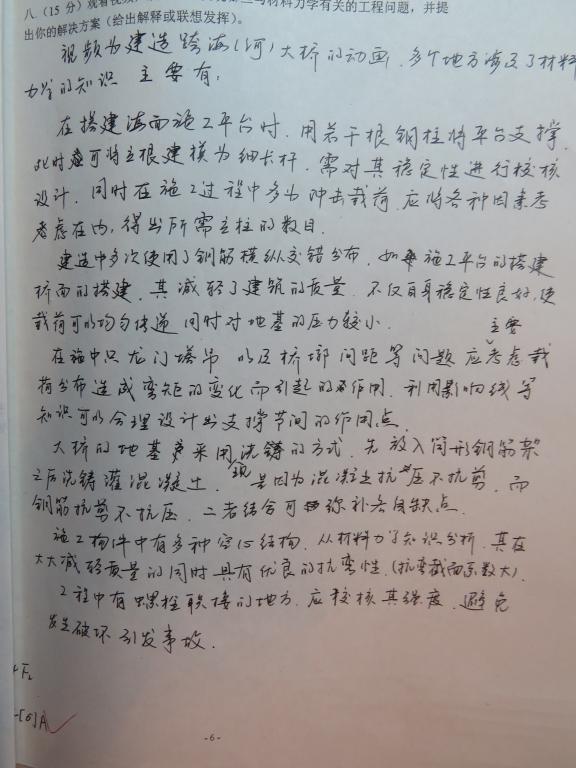 八（15 分）观看视频
与材料力学有关的工程问题，并提
出你的解决方案（给出解释或联想发挥）。
视频为建造跨海(河)大桥的动画，多个地方涉及了材料
力学的知识 主要有：
在搭建海面施工平台时，用若干根钢柱将平台支撑，
此时应可将立根建模为细长杆，需对其稳定性进行校核
设计，同时在施工过程中多为冲击载荷，应将各种因素考
考虑在内，得出所需立柱的数目．
建造中多次使用了钢筋横纵交错分布，如 施工平台的搭建
桥面的搭建，其减轻了建筑的质量，不仅自身稳定性良好，使
载荷可以均匀传递 同时对地基的压力较小．
主要
在施中只龙门塔吊 以及桥墩间距等问题 应考虑载
荷分布造成弯矩的变化而引起的 作用，利用影响线等
知识可以合理设计出支撑节间的作用点．
大桥的地基 采用浇铸的方式，先放入筒形钢筋架
之后浇铸灌混凝土， 是因为混凝土抗压不抗剪，而
钢筋抗剪不抗压，二者结合可 弥补各自缺点．
施工构件中有多种空心结构，从材料力学知识分析，其在
大大减轻质量的同时具有优良的抗弯性．(抗弯截面系数大)．
工程中有 螺栓联接的地方，应校核其强度，避免
发生破坏引发事故．
+F₂
-[σ]A
-6-